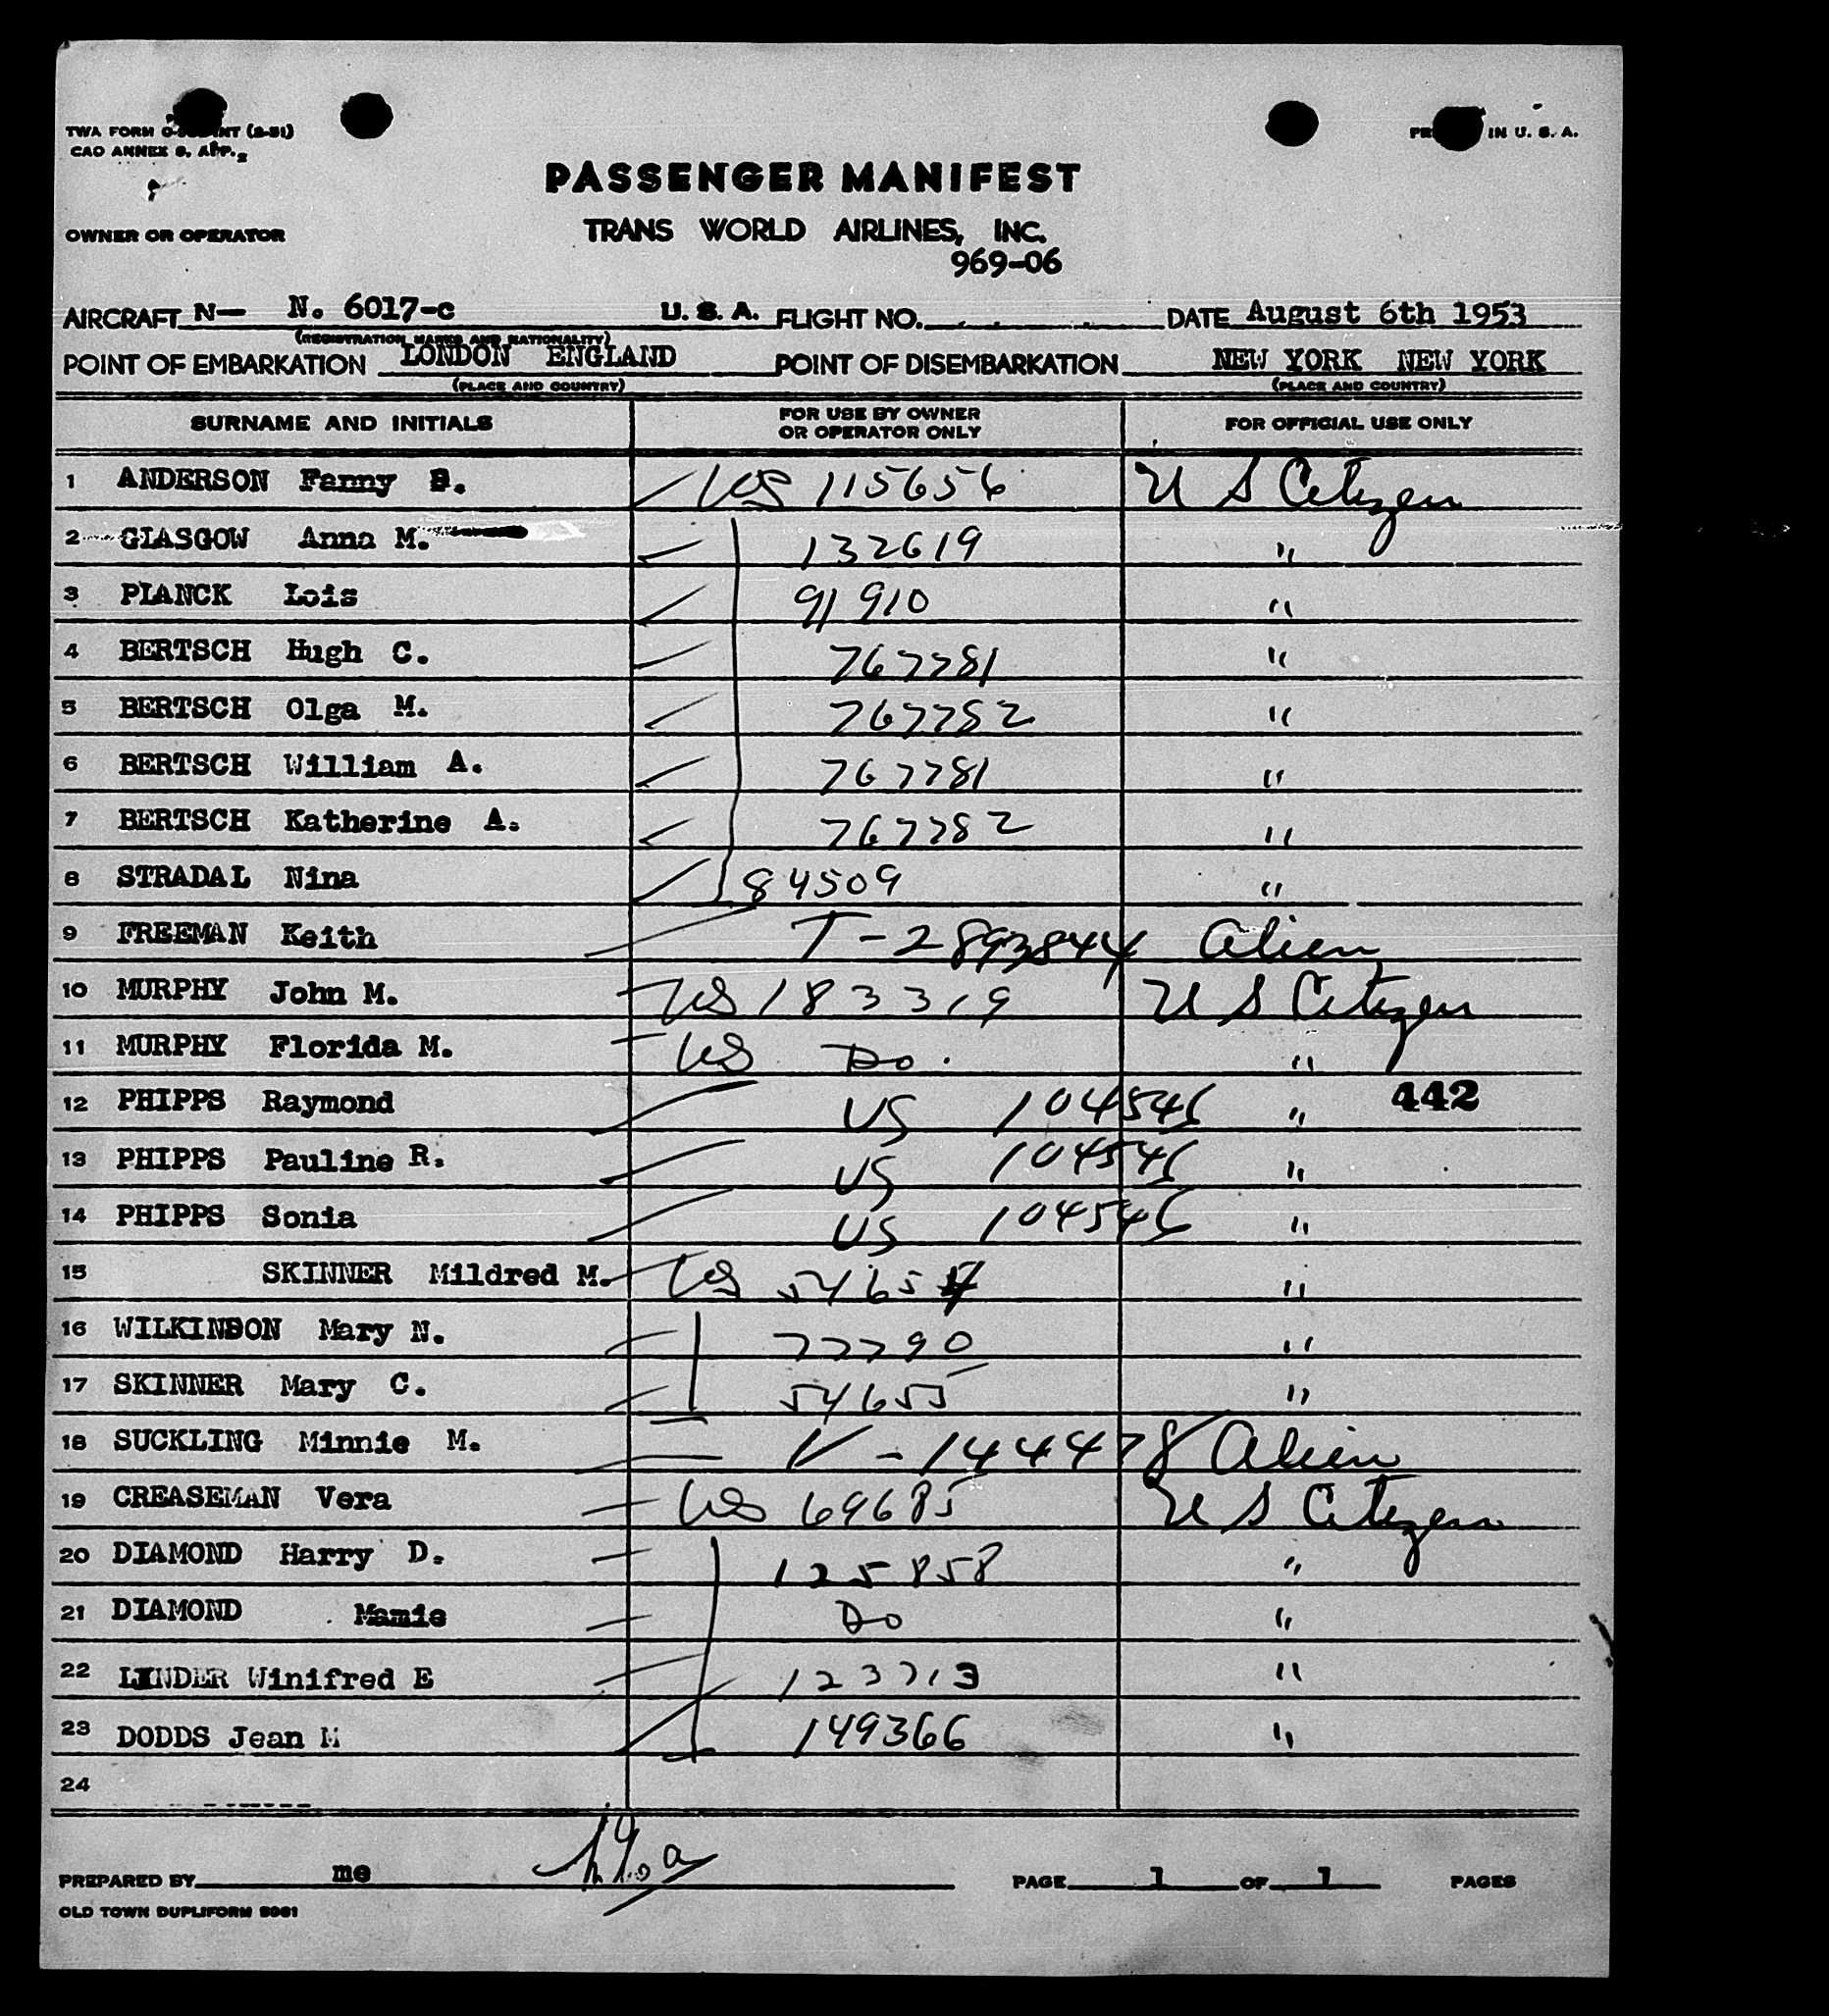 TWA FORM (2-51) PR IN U. S. A.
CAO ANNEX 9, APP. 2
PASSENGER MANIFEST
OWNER OR OPERATOR TRANS WORLD AIRLINES, INC.
969-06
AIRCRAFT N— N. 6017-c U. S. A. FLIGHT NO. DATE August 6th 1953
(REGISTRATION MARKS AND NATIONALITY)
POINT OF EMBARKATION LONDON ENGLAND POINT OF DISEMBARKATION NEW YORK NEW YORK
(PLACE AND COUNTRY) (PLACE AND COUNTRY)
SURNAME AND INITIALS FOR USE BY OWNER OR OPERATOR ONLY FOR OFFICIAL USE ONLY
1 ANDERSON Fanny B. US 115656 U S Citizen
2 GLASGOW Anna M. 132619 "
3 PLANCK Lois 91910 "
4 BERTSCH Hugh C. 767781 "
5 BERTSCH Olga M. 767782 "
6 BERTSCH William A. 767781 "
7 BERTSCH Katherine A. 767782 "
8 STRADAL Nina 84509 "
9 FREEMAN Keith T-2893844 Alien
10 MURPHY John M. US 183319 U S Citizen
11 MURPHY Florida M. US Do. "
12 PHIPPS Raymond US 104546 " 442
13 PHIPPS Pauline R. US 104546 "
14 PHIPPS Sonia US 104546 "
15 SKINNER Mildred M. US 54654 "
16 WILKINSON Mary N. 77790 "
17 SKINNER Mary C. 54655 "
18 SUCKLING Minnie M. V-144478 Alien
19 CREASEMAN Vera US 69685 U S Citizen
20 DIAMOND Harry D. 125858 "
21 DIAMOND Mamie Do "
22 LINDER Winifred E 123713 "
23 DODDS Jean M 149366 "
24
PREPARED BY me PAGE 1 OF 1 PAGES
OLD TOWN DUPLIFORM